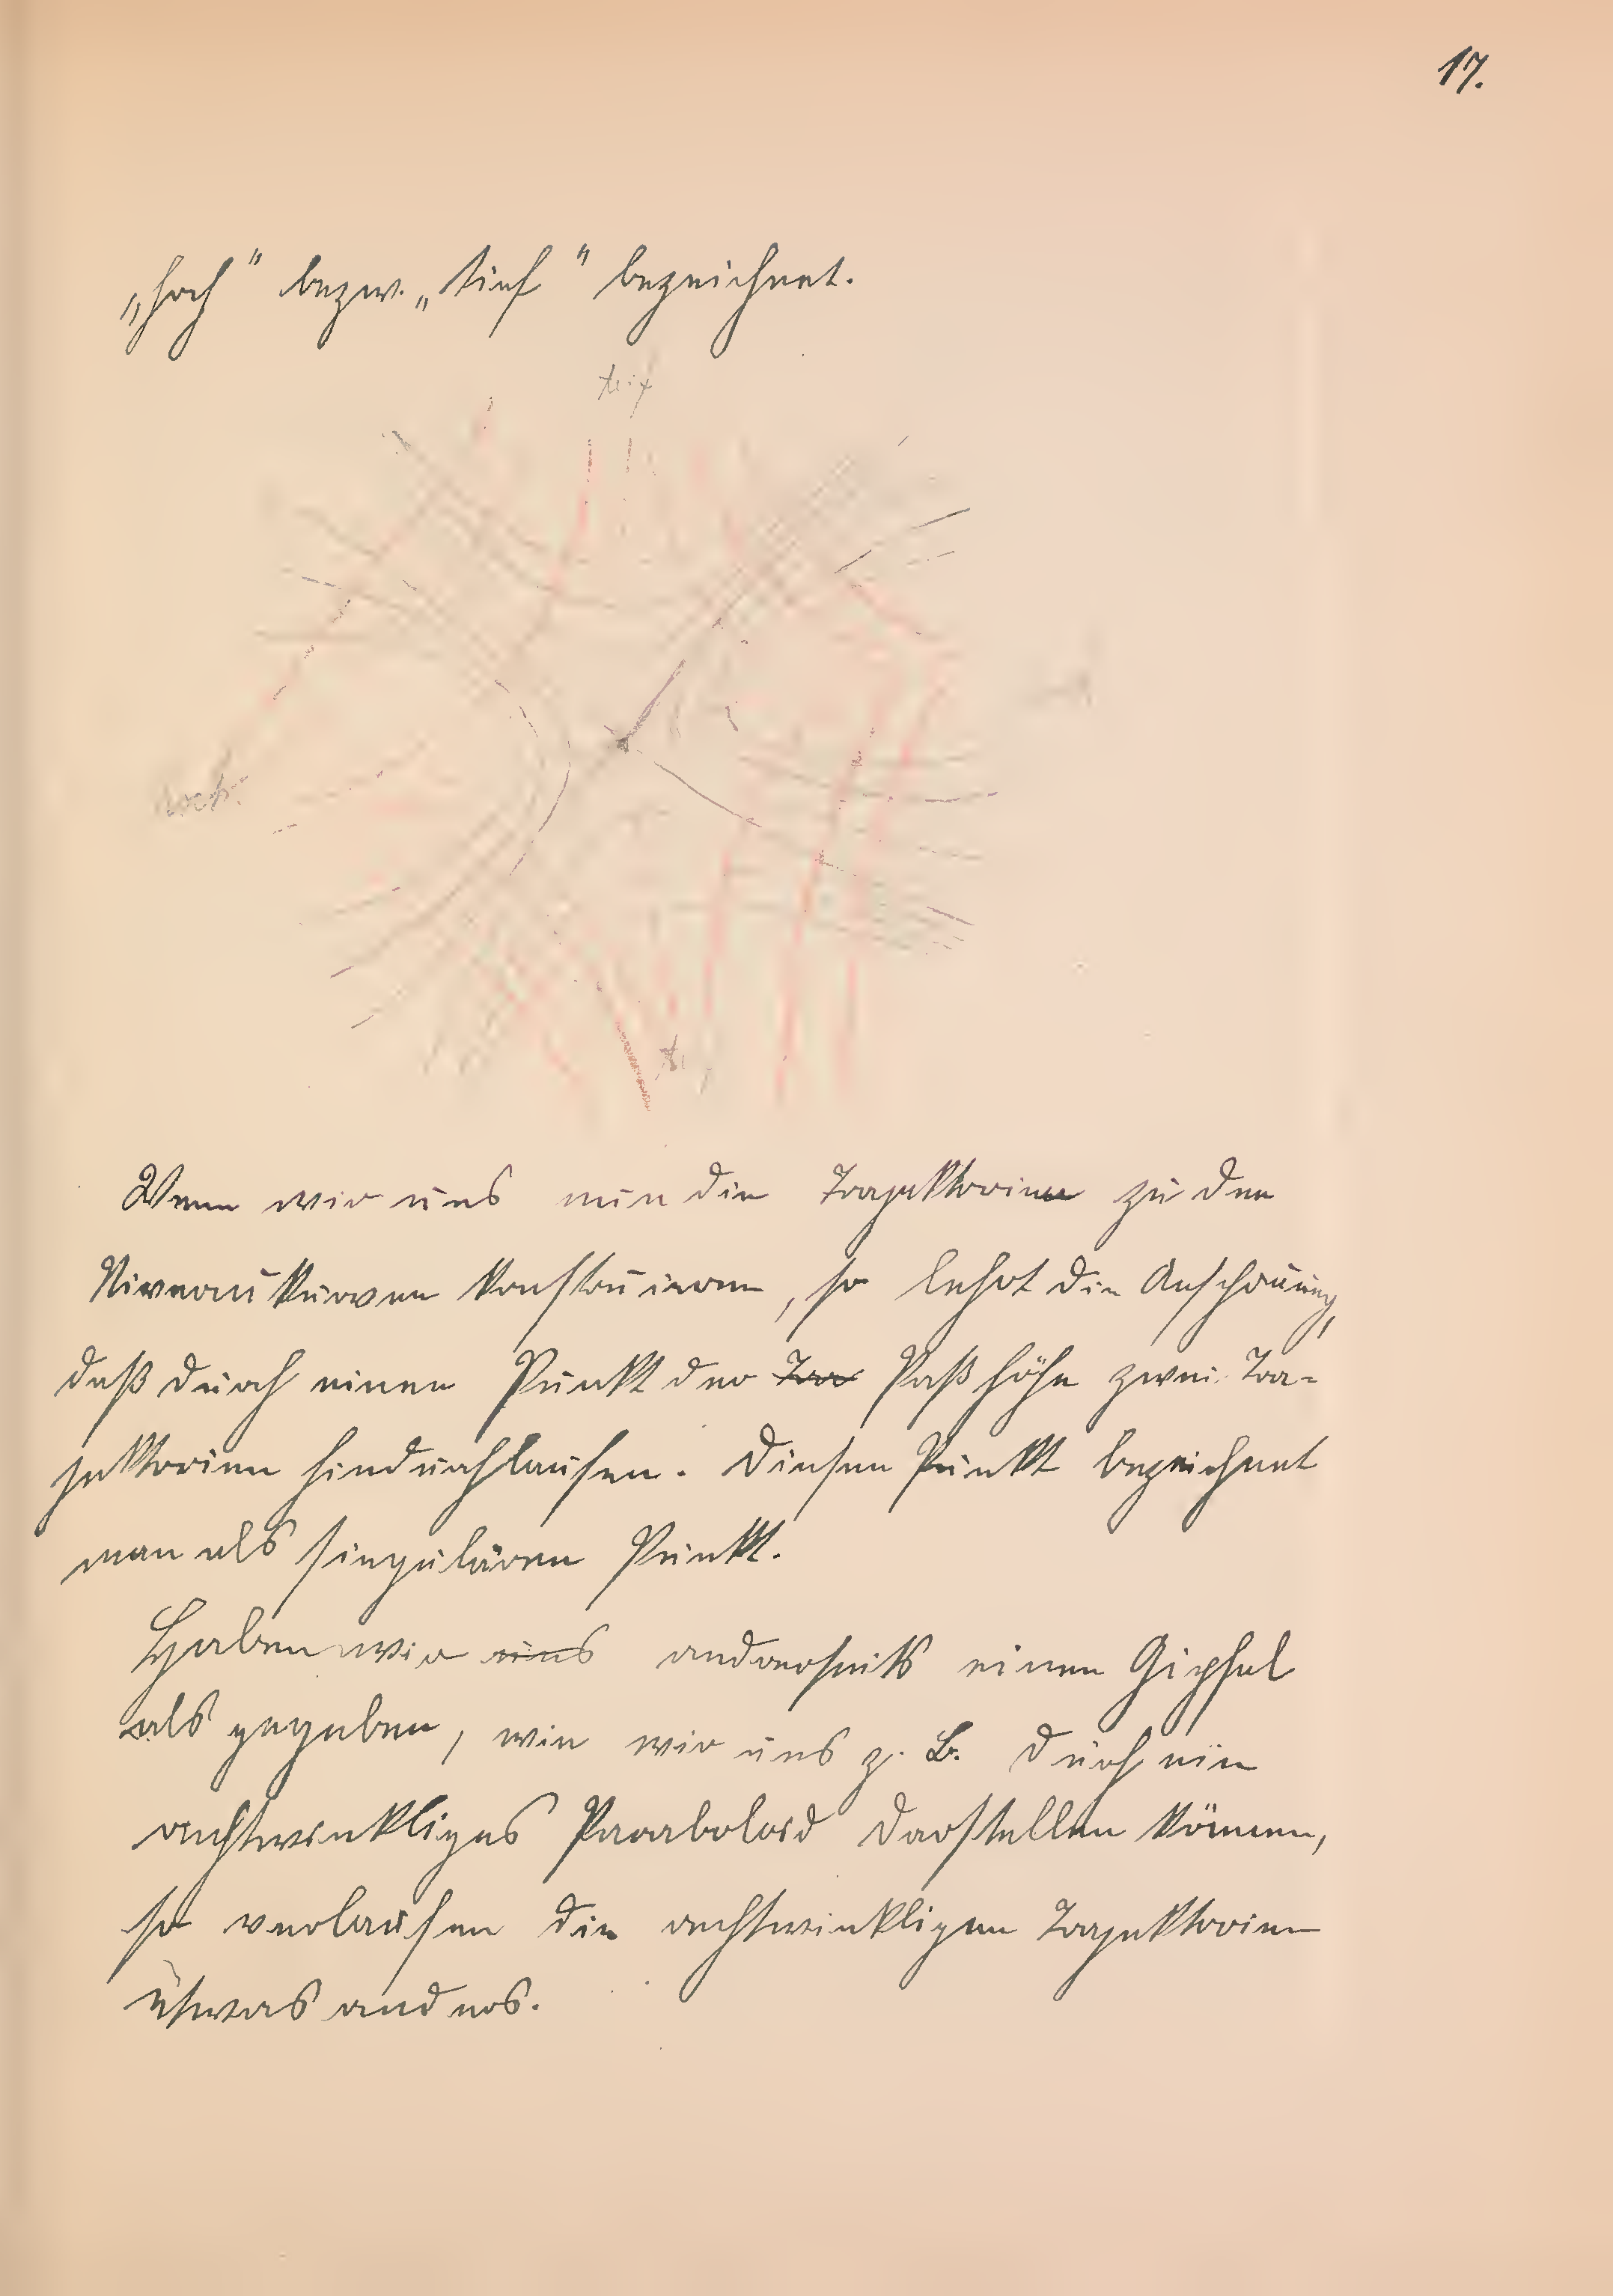 17.
„hoch" bezw. „tief" bezeichnet.
tief
hoch.
Wenn wir uns nun die Trajektorien zu den
Niveaukurven konstruieren, so lehrt die Anschauung,
daß durch einen Punkt der Tra Paßhöhe zwei Tra-
jektorien hindurchlaufen. Diesen Punkt bezeichnet
man als singulären Punkt.
Haben wir uns andrerseits einen Gipfel
als gegeben, wie wir uns z. B. durch ein
rechtwinkliges Paraboloid darstellen können,
so verlaufen die rechtwinkligen Trajektorien
etwas anders.